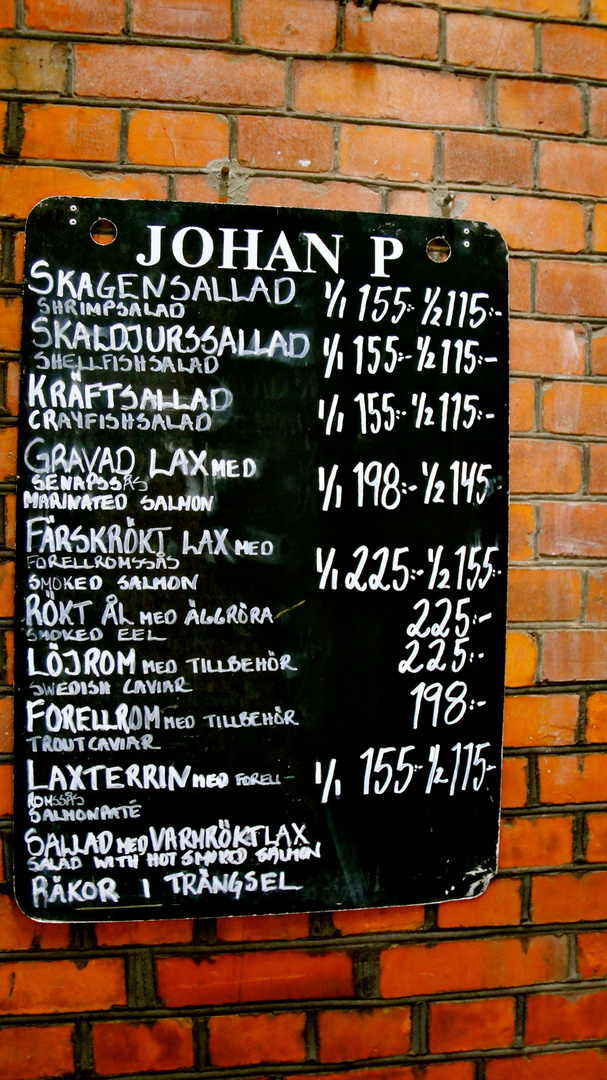 JOHAN P
SKAGENSALLAD 1/1 155:- 1/2 115:-
SHRIMPSALAD
SKALDJURSSALLAD 1/1 155:- 1/2 115:-
SHELLFISHSALAD
KRÄFTSALLAD 1/1 155:- 1/2 115:-
CRAYFISHSALAD
GRAVAD LAX MED 1/1 198:- 1/2 145
SENAPSSÅS
MARINATED SALMON
FÄRSKRÖKT LAX MED
FORELLROMSSÅS 1/1 225:- 1/2 155:-
SMOKED SALMON
RÖKT ÅL MED ÄGGRÖRA 225:-
SMOKED EEL
LÖJROM MED TILLBEHÖR 225:-
SWEDISH CAVIAR
FORELLROM MED TILLBEHÖR 198:-
TROUTCAVIAR
LAXTERRIN MED FORELL- 1/1 155:- 1/2 115:-
ROMSSÅS
SALMONPATÉ
SALLAD MED VARMRÖKT LAX
SALAD WITH HOT SMOKED SALMON
RÄKOR I TRÄNGSEL